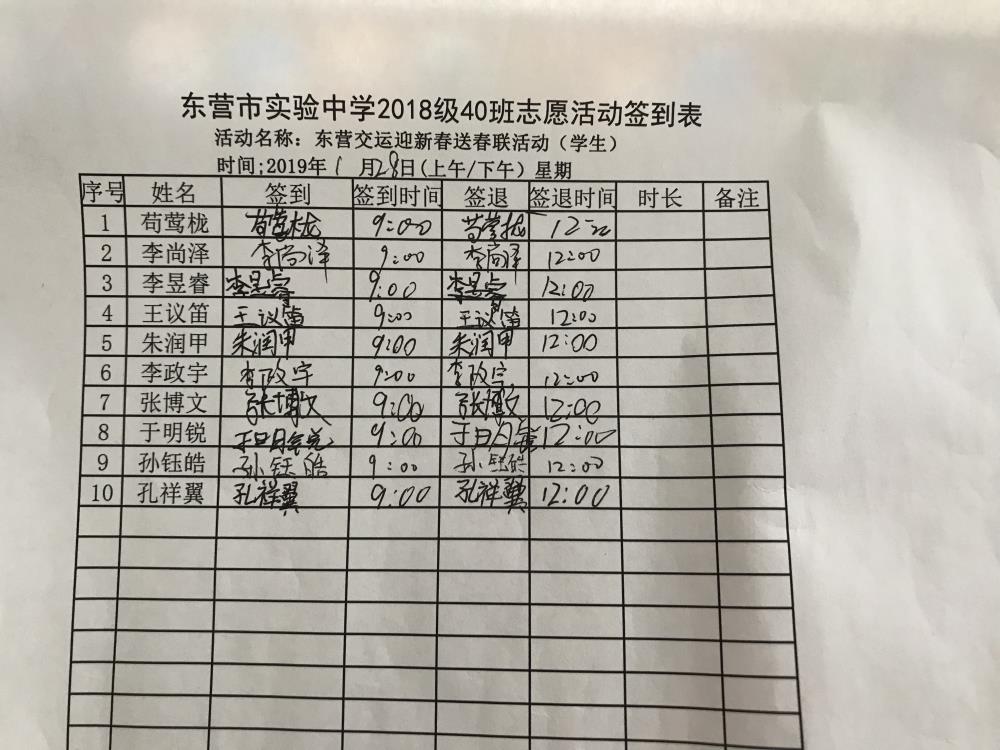 东营市实验中学2018级40班志愿活动签到表
活动名称：东营交运迎新春送春联活动（学生）
时间;2019年 1 月28日(上午/下午) 星期
序号 姓名 签到 签到时间 签退 签退时间 时长 备注
1 苟莺栊 苟莺栊 9:00 苟莺栊 12:00
2 李尚泽 李尚泽 9:00 李尚泽 12:00
3 李昱睿 李昱睿 9:00 李昱睿 12:00
4 王议笛 王议笛 9:00 王议笛 12:00
5 朱润甲 朱润甲 9:00 朱润甲 12:00
6 李政宇 李政宇 9:00 李政宇 12:00
7 张博文 张博文 9:00 张博文 12:00
8 于明锐 于明锐 9:00 于明锐 12:00
9 孙钰皓 孙钰皓 9:00 孙钰皓 12:00
10 孔祥翼 孔祥翼 9:00 孔祥翼 12:00